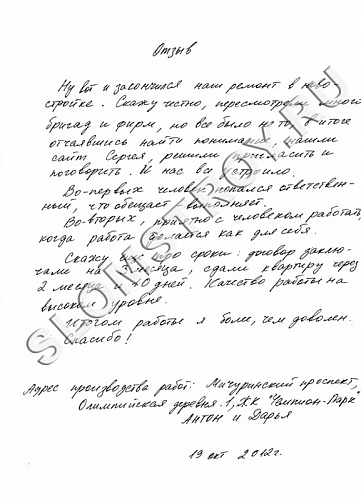 Отзыв
Ну вот и закончился наш ремонт в ново
стройке. Скажу честно, пересмотрели много
бригад и фирм, но все было не то, в итоге
отчаявшись найти понимание, нашли
сайт Сергея, решили пригласить и
поговорить. И нас все устроило.
Во-первых человек попался ответствен-
ный, что обещает выполняет.
Во-вторых, приятно с человеком работать,
когда работа делается как для себя.
Скажу их про сроки: договор заклю-
чали на 3 месяца, сдали квартиру через
2 месяца и 20 дней. Качество работы на
высоком уровне.
Итогом работы я более, чем доволен.
Спасибо!
Адрес производства работ: Мичуринский проспект,
Олимпийская деревня. 1, ЖК "Чемпион-Парк"
Антон и Дарья
19 окт 2012г.